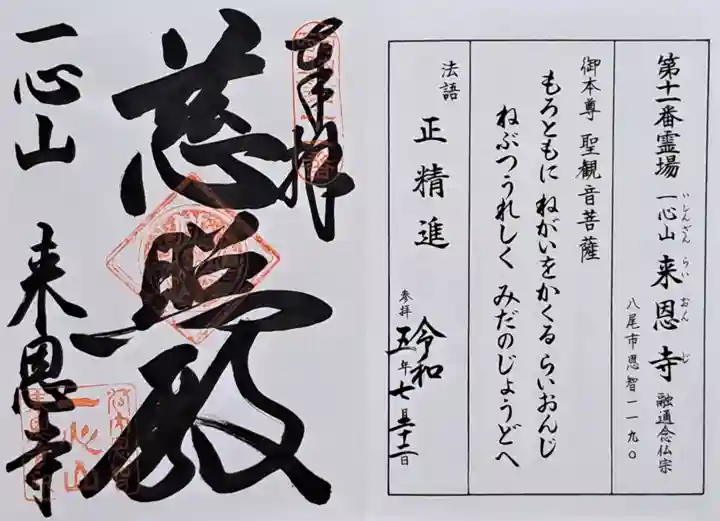 奉拝
慈照殿
一心山 来恩寺
第十一番霊場 一心山 来恩寺 融通念仏宗
いしんざん らい おん じ
八尾市恩智一一九〇
御本尊 聖観音菩薩
もろともに ねがいをかくる らいおんじ
ねぶつうれしく みだのじょうどへ
法語 正精進
参拝 令和五年七月二十二日